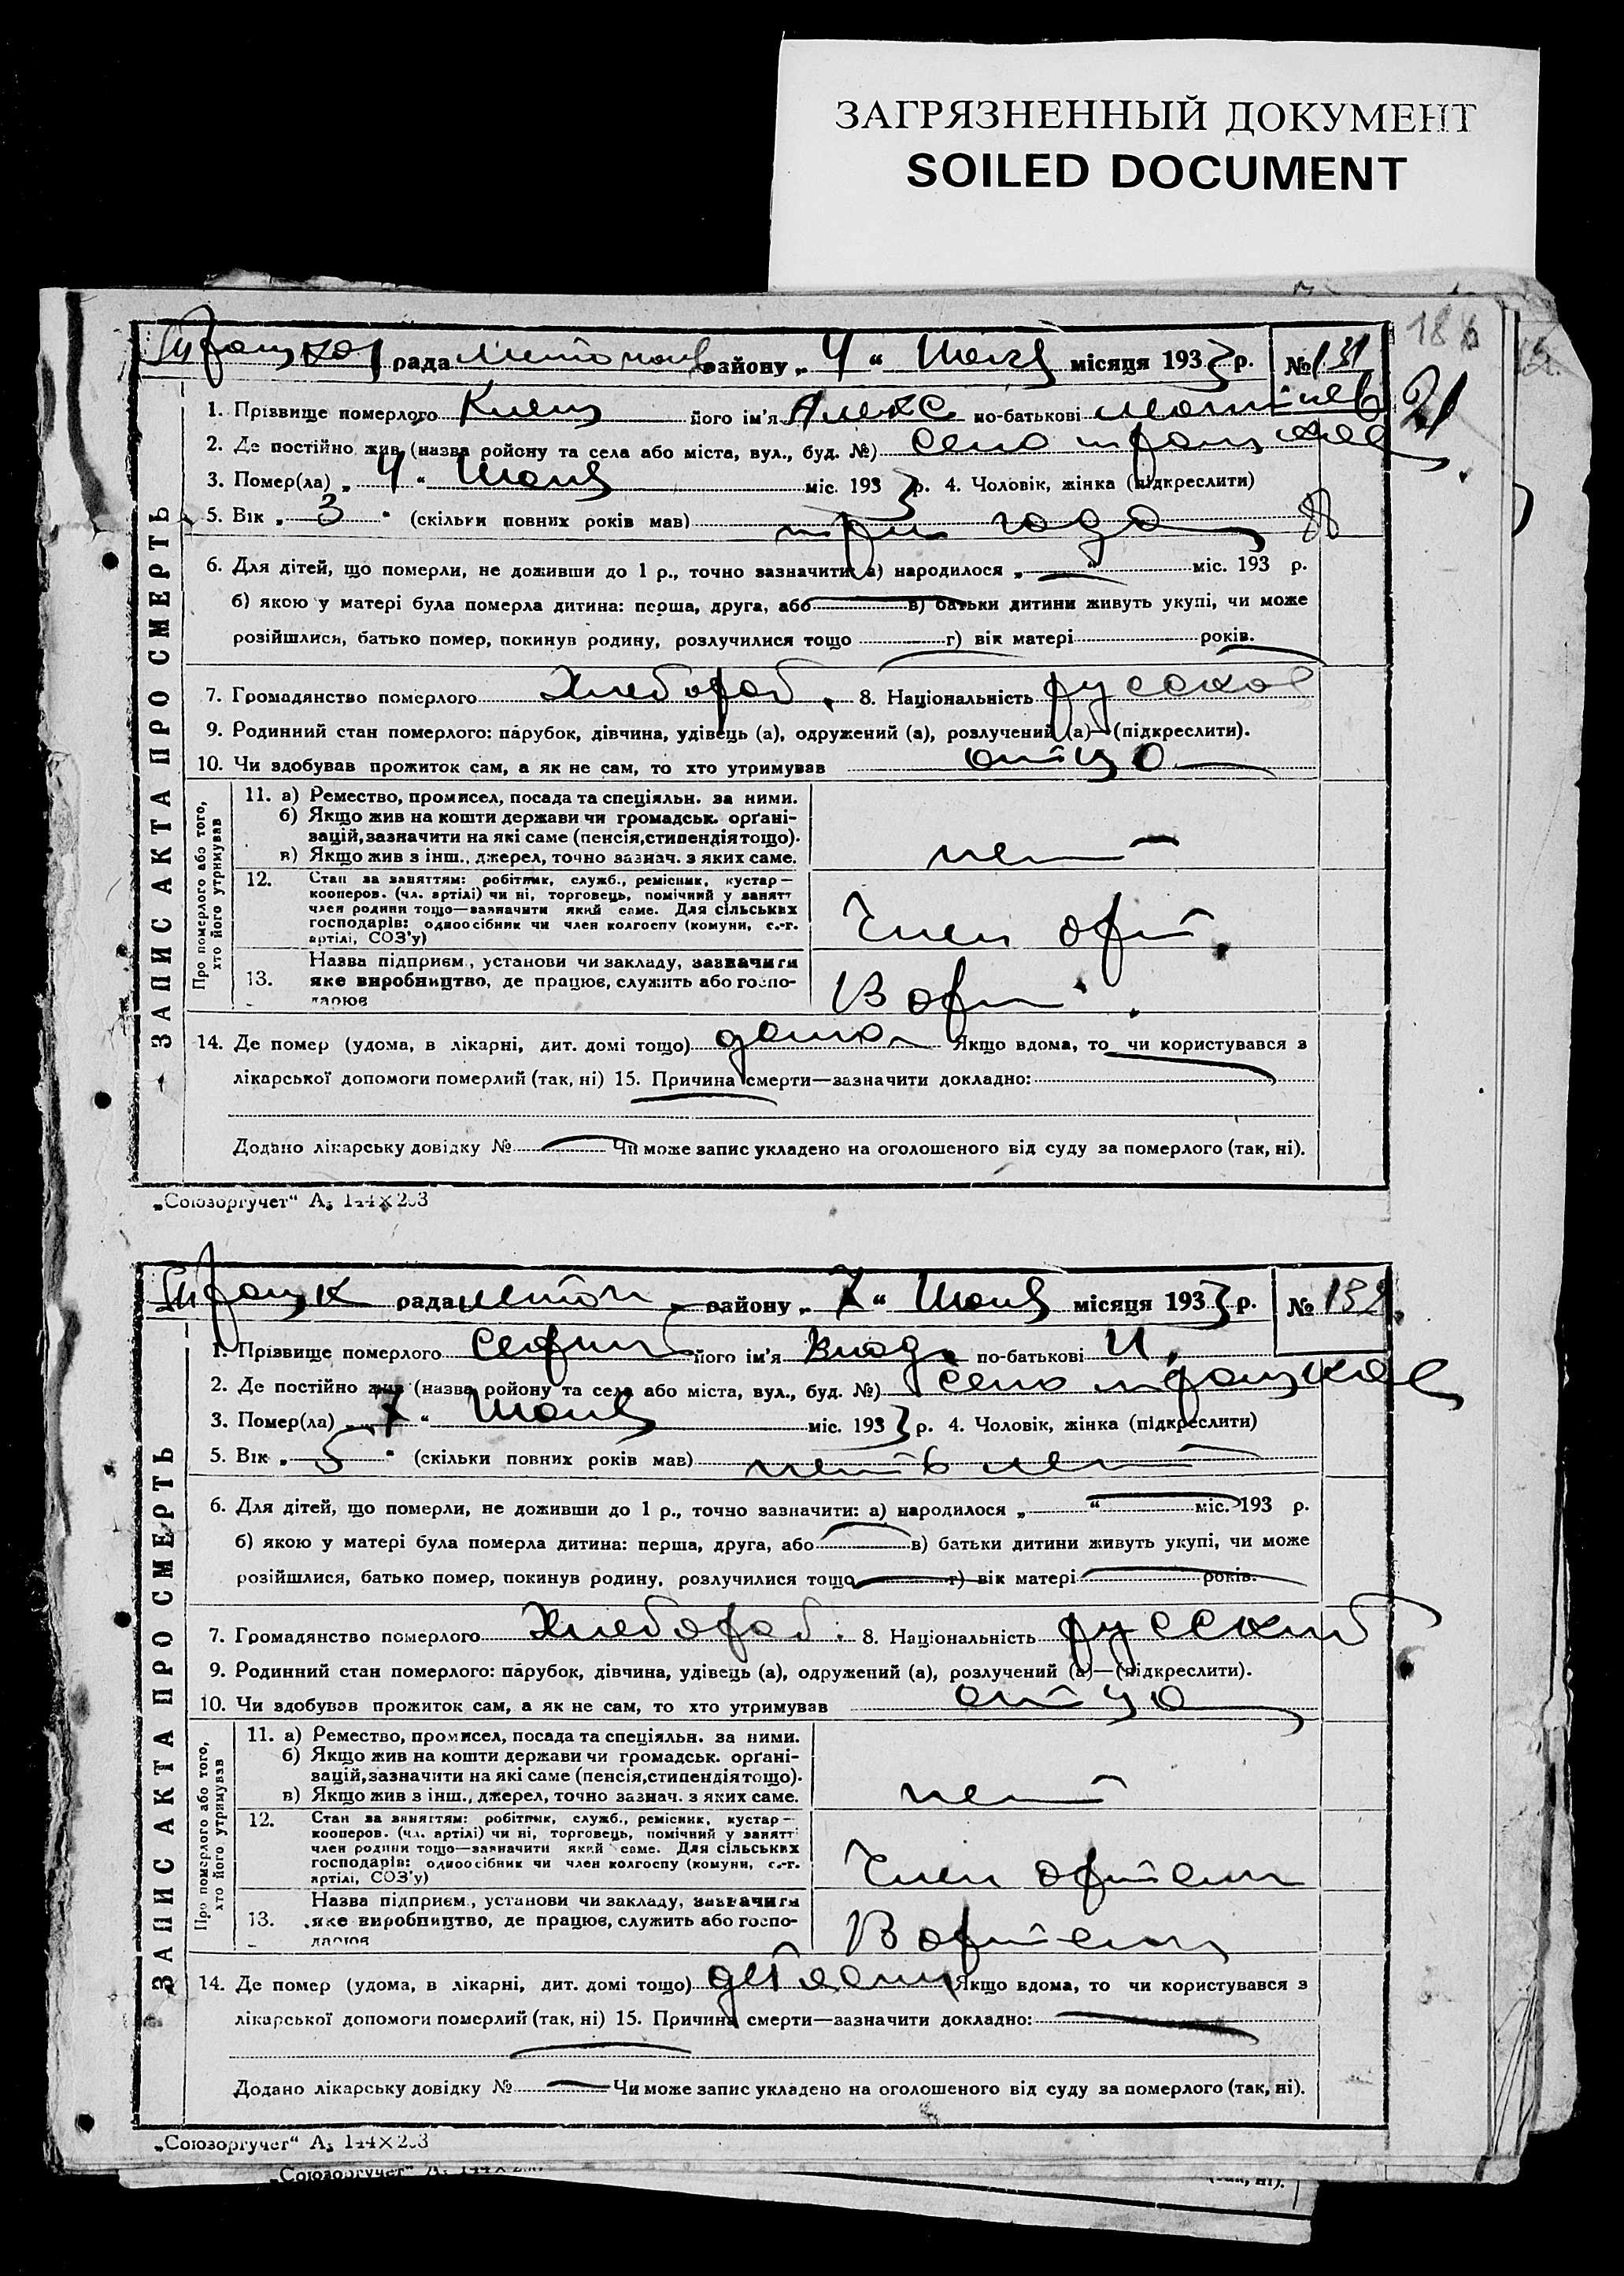 ЗАГРЯЗНЕННЫЙ ДОКУМЕНТ
SOILED DOCUMENT
рада району „ 4 “ Июня місяця 1933 р. № 131
21
ЗАПИС АКТА ПРО СМЕРТЬ
1. Прізвище померлого його ім'я Алекс по-батькові
2. Де постійно жив (назва ройону та села або міста, вул., буд. №) село троицкое
3. Помер(ла) „ 4 “ Июня міс. 1933 р. 4. Чоловік, жінка (підкреслити)
5. Вік „ 3 “ (скільки повних років мав) три года
6. Для дітей, що померли, не доживши до 1 р., точно зазначити: а) народилося „ “ міс. 193 р.
б) якою у матері була померла дитина: перша, друга, або в) батьки дитини живуть укупі, чи може
розійшлися, батько помер, покинув родину, розлучилися тощо г) вік матері років.
7. Громадянство померлого Хлебороб. 8. Національність русское
9. Родинний стан померлого: парубок, дівчина, удівець (а), одружений (а), розлучений (а)—(підкреслити).
10. Чи здобував прожиток сам, а як не сам, то хто утримував отцо
Про померлого або того, хто його утримував
11. а) Ремество, промисел, посада та спеціяльн. за ними.
б) Якщо жив на кошти держави чи громадськ. орґані-
зацій, зазначити на які саме (пенсія, стипендія тощо).
в) Якщо жив з інш., джерел, точно зазнач. з яких саме.
нет
12. Стан за заняттям: робітник, служб., ремісник, кустар—
кооперов. (чл. артілі) чи ні, торговець, помічний у занятт
член родини тощо—зазначити який саме. Для сільських
господарів: одноосібник чи член колгоспу (комуни, с.-г.
артілі, СОЗ'у)
Член арт.
13. Назва підприєм., установи чи закладу, зазначити
яке виробництво, де працює, служить або госпо-
дарює
В арт.
14. Де помер (удома, в лікарні, дит. домі тощо) дома Якщо вдома, то чи користувався з
лікарської допомоги померлий (так, ні) 15. Причина смерти—зазначити докладно:
Додано лікарську довідку № Чи може запис укладено на оголошеного від суду за померлого (так, ні).
„Союзоргучет“ А₅ 144×203
Троицк рада района „ 7 “ Июня місяця 1933 р. № 132
ЗАПИС АКТА ПРО СМЕРТЬ
1. Прізвище померлого його ім'я Влад. по-батькові И.
2. Де постійно жив (назва ройону та села або міста, вул., буд. №) село троицкое
3. Помер(ла) „ 7 “ Июня міс. 1933 р. 4. Чоловік, жінка (підкреслити)
5. Вік „ 5 “ (скільки повних років мав) пять лет
6. Для дітей, що померли, не доживши до 1 р., точно зазначити: а) народилося „ “ міс. 193 р.
б) якою у матері була померла дитина: перша, друга, або в) батьки дитини живуть укупі, чи може
розійшлися, батько помер, покинув родину, розлучилися тощо г) вік матері років.
7. Громадянство померлого Хлебороб. 8. Національність русский
9. Родинний стан померлого: парубок, дівчина, удівець (а), одружений (а), розлучений (а)—(підкреслити).
10. Чи здобував прожиток сам, а як не сам, то хто утримував отцо
Про померлого або того, хто його утримував
11. а) Ремество, промисел, посада та спеціяльн. за ними.
б) Якщо жив на кошти держави чи громадськ. орґані-
зацій, зазначити на які саме (пенсія, стипендія тощо).
в) Якщо жив з інш., джерел, точно зазнач. з яких саме.
нет
12. Стан за заняттям: робітник, служб., ремісник, кустар—
кооперов. (чл. артілі) чи ні, торговець, помічний у занятт
член родини тощо—зазначити який саме. Для сільських
господарів: одноосібник чи член колгоспу (комуни, с.-г.
артілі, СОЗ'у)
Член артели
13. Назва підприєм., установи чи закладу, зазначити
яке виробництво, де працює, служить або госпо-
дарює
В артели
14. Де помер (удома, в лікарні, дит. домі тощо) дет ясли Якщо вдома, то чи користувався з
лікарської допомоги померлий (так, ні) 15. Причина смерти—зазначити докладно:
Додано лікарську довідку № Чи може запис укладено на оголошеного від суду за померлого (так, ні).
„Союзоргучет“ А₅ 144×203
„Союзоргучет“